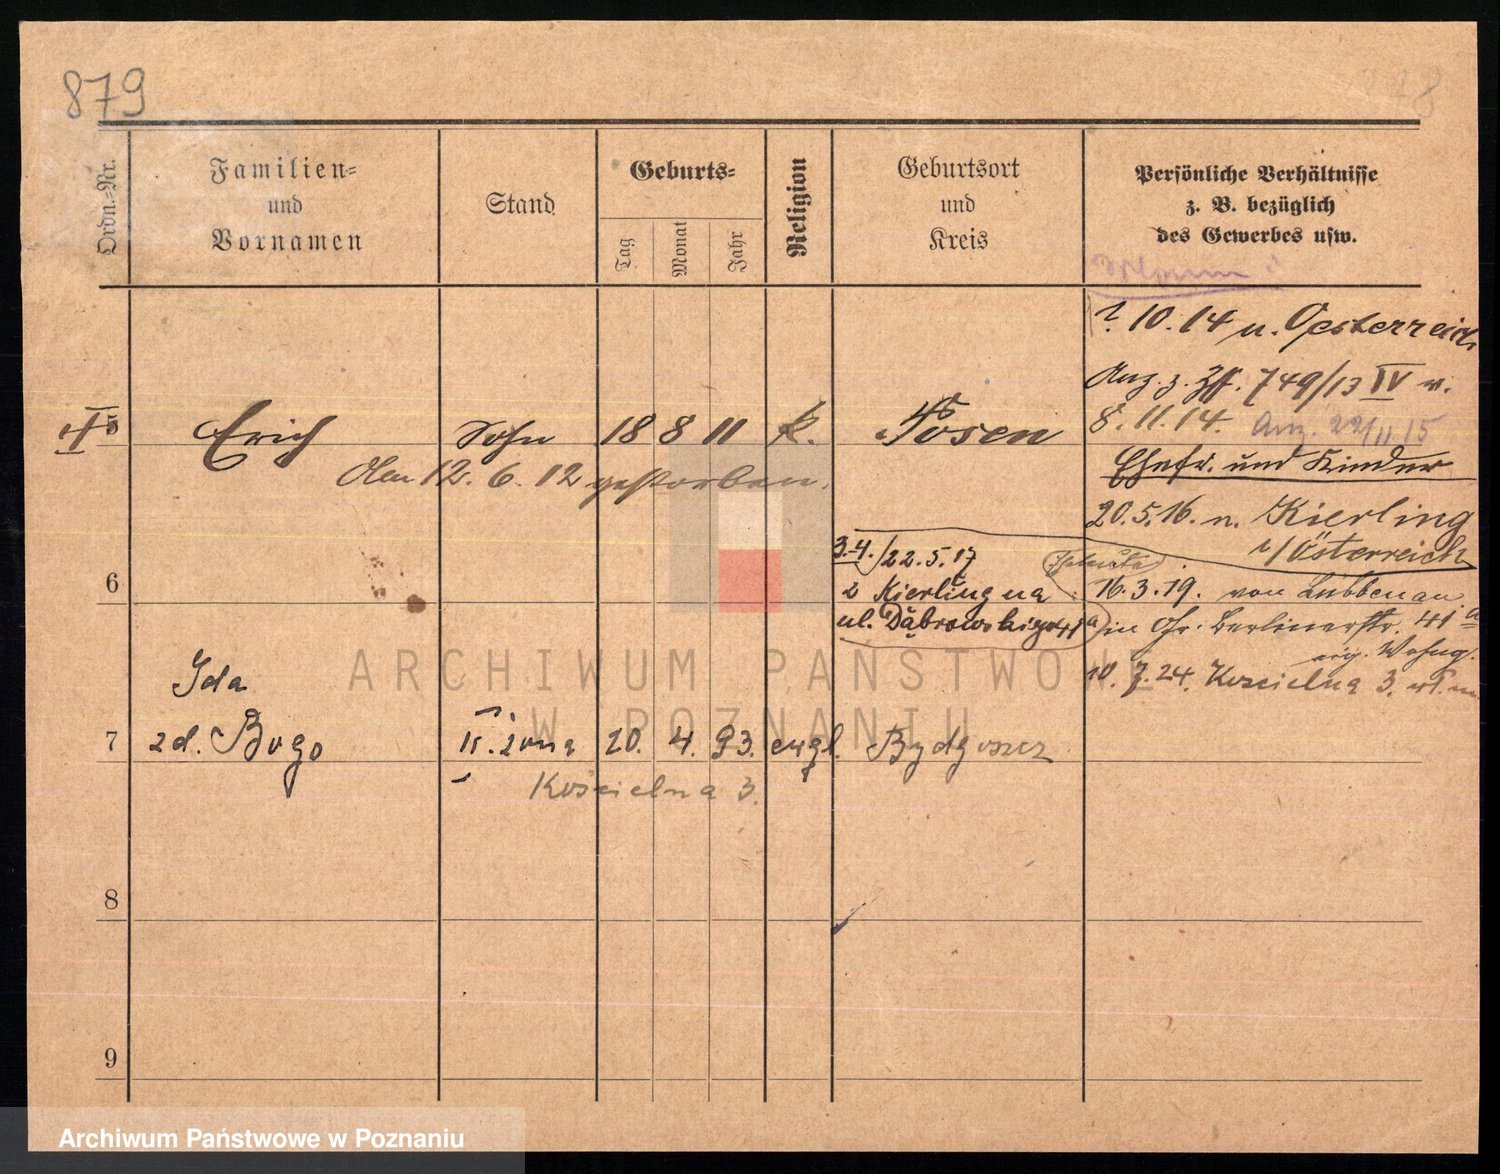 879
Ordn.-Nr.
Familien-
und
Vornamen
Stand
Geburts-
Tag
Monat
Jahr
Religion
Geburtsort
und
Kreis
Persönliche Verhältnisse
z. B. bezüglich
des Gewerbes usw.
10.14 n. Oesterreich
Anz. z. 749/13 IV v.
8.11.14. Anz. 22/11 15
5 Erich Sohn 18 8 11 k. Posen
Ehefr. und Kinder
Am 12. 6. 12 gestorben.
20.5.16. n. Kierling
i/Österreich
3.4./22.5.17
z Kierling na
ul. Dąbrowskiego 41a
16.3.19. von Lübbenau
in Gr. Berlinerstr. 41a
eig. Wohng.
10.7.24. Kościelna 3.
6
Ida
7 zd. Bogo II. żona 20. 4. 93. ewgl. Bydgoszcz
Kościelna 3.
8
9
ARCHIWUM PAŃSTWOWE
W POZNANIU
Archiwum Państwowe w Poznaniu